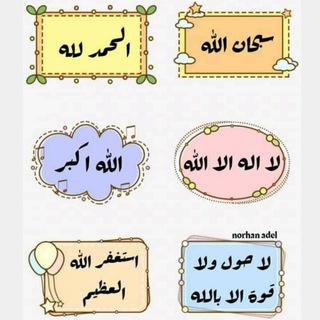 سبحان الله
الحمد لله
لا اله الا الله
الله اكبر
norhan adel
لا حول ولا
قوة الا بالله
استغفر الله
العظيم